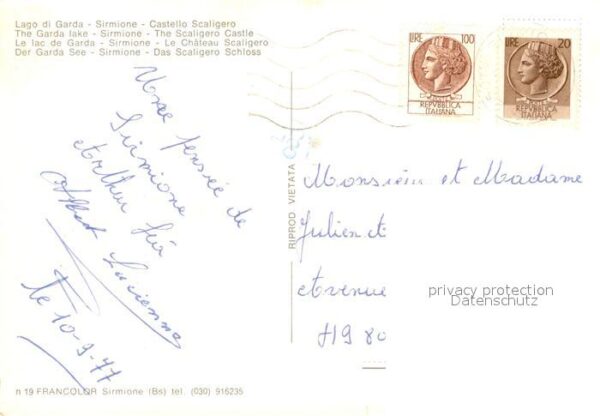 Lago di Garda - Sirmione - Castello Scaligero
The Garda lake - Sirmione - The Scaligero Castle
Le lac de Garda - Sirmione - Le Château Scaligero
Der Garda See - Sirmione - Das Scaligero Schloss
LIRE 100
REPVBBLICA
ITALIANA
LIRE 20
REPVBBLICA
ITALIANA
Une pensée de
Sirmione
Albert Lucienne
le 10-9-77
RIPROD VIETATA
Monsieur et Madame
Julien et
privacy protection
Datenschutz
n 19 FRANCOLOR Sirmione (Bs) tel. (030) 916235